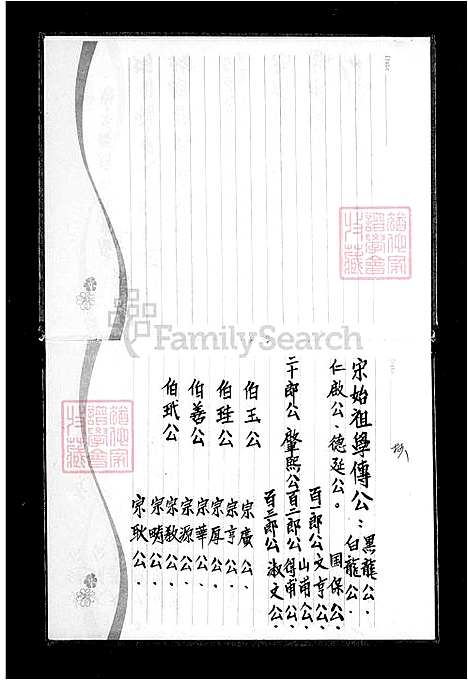 Date
宋始祖學傳公：黑龍公．
白龍公．
仁啟公、德延公。 国保公．
百一郎公文亨公．
山前公．
二十郎公 肇熙公百二郎公得甫公．
百三郎公淑文公．
伯玉公 宗廣公．
宗亨公．
伯珪公 宗厚公．
宗華公．
伯善公 宗源公．
宗教公．
伯玳公 宗疇公．
宗耿公．
FamilySearch
譜學會
收藏
譜學會
收藏